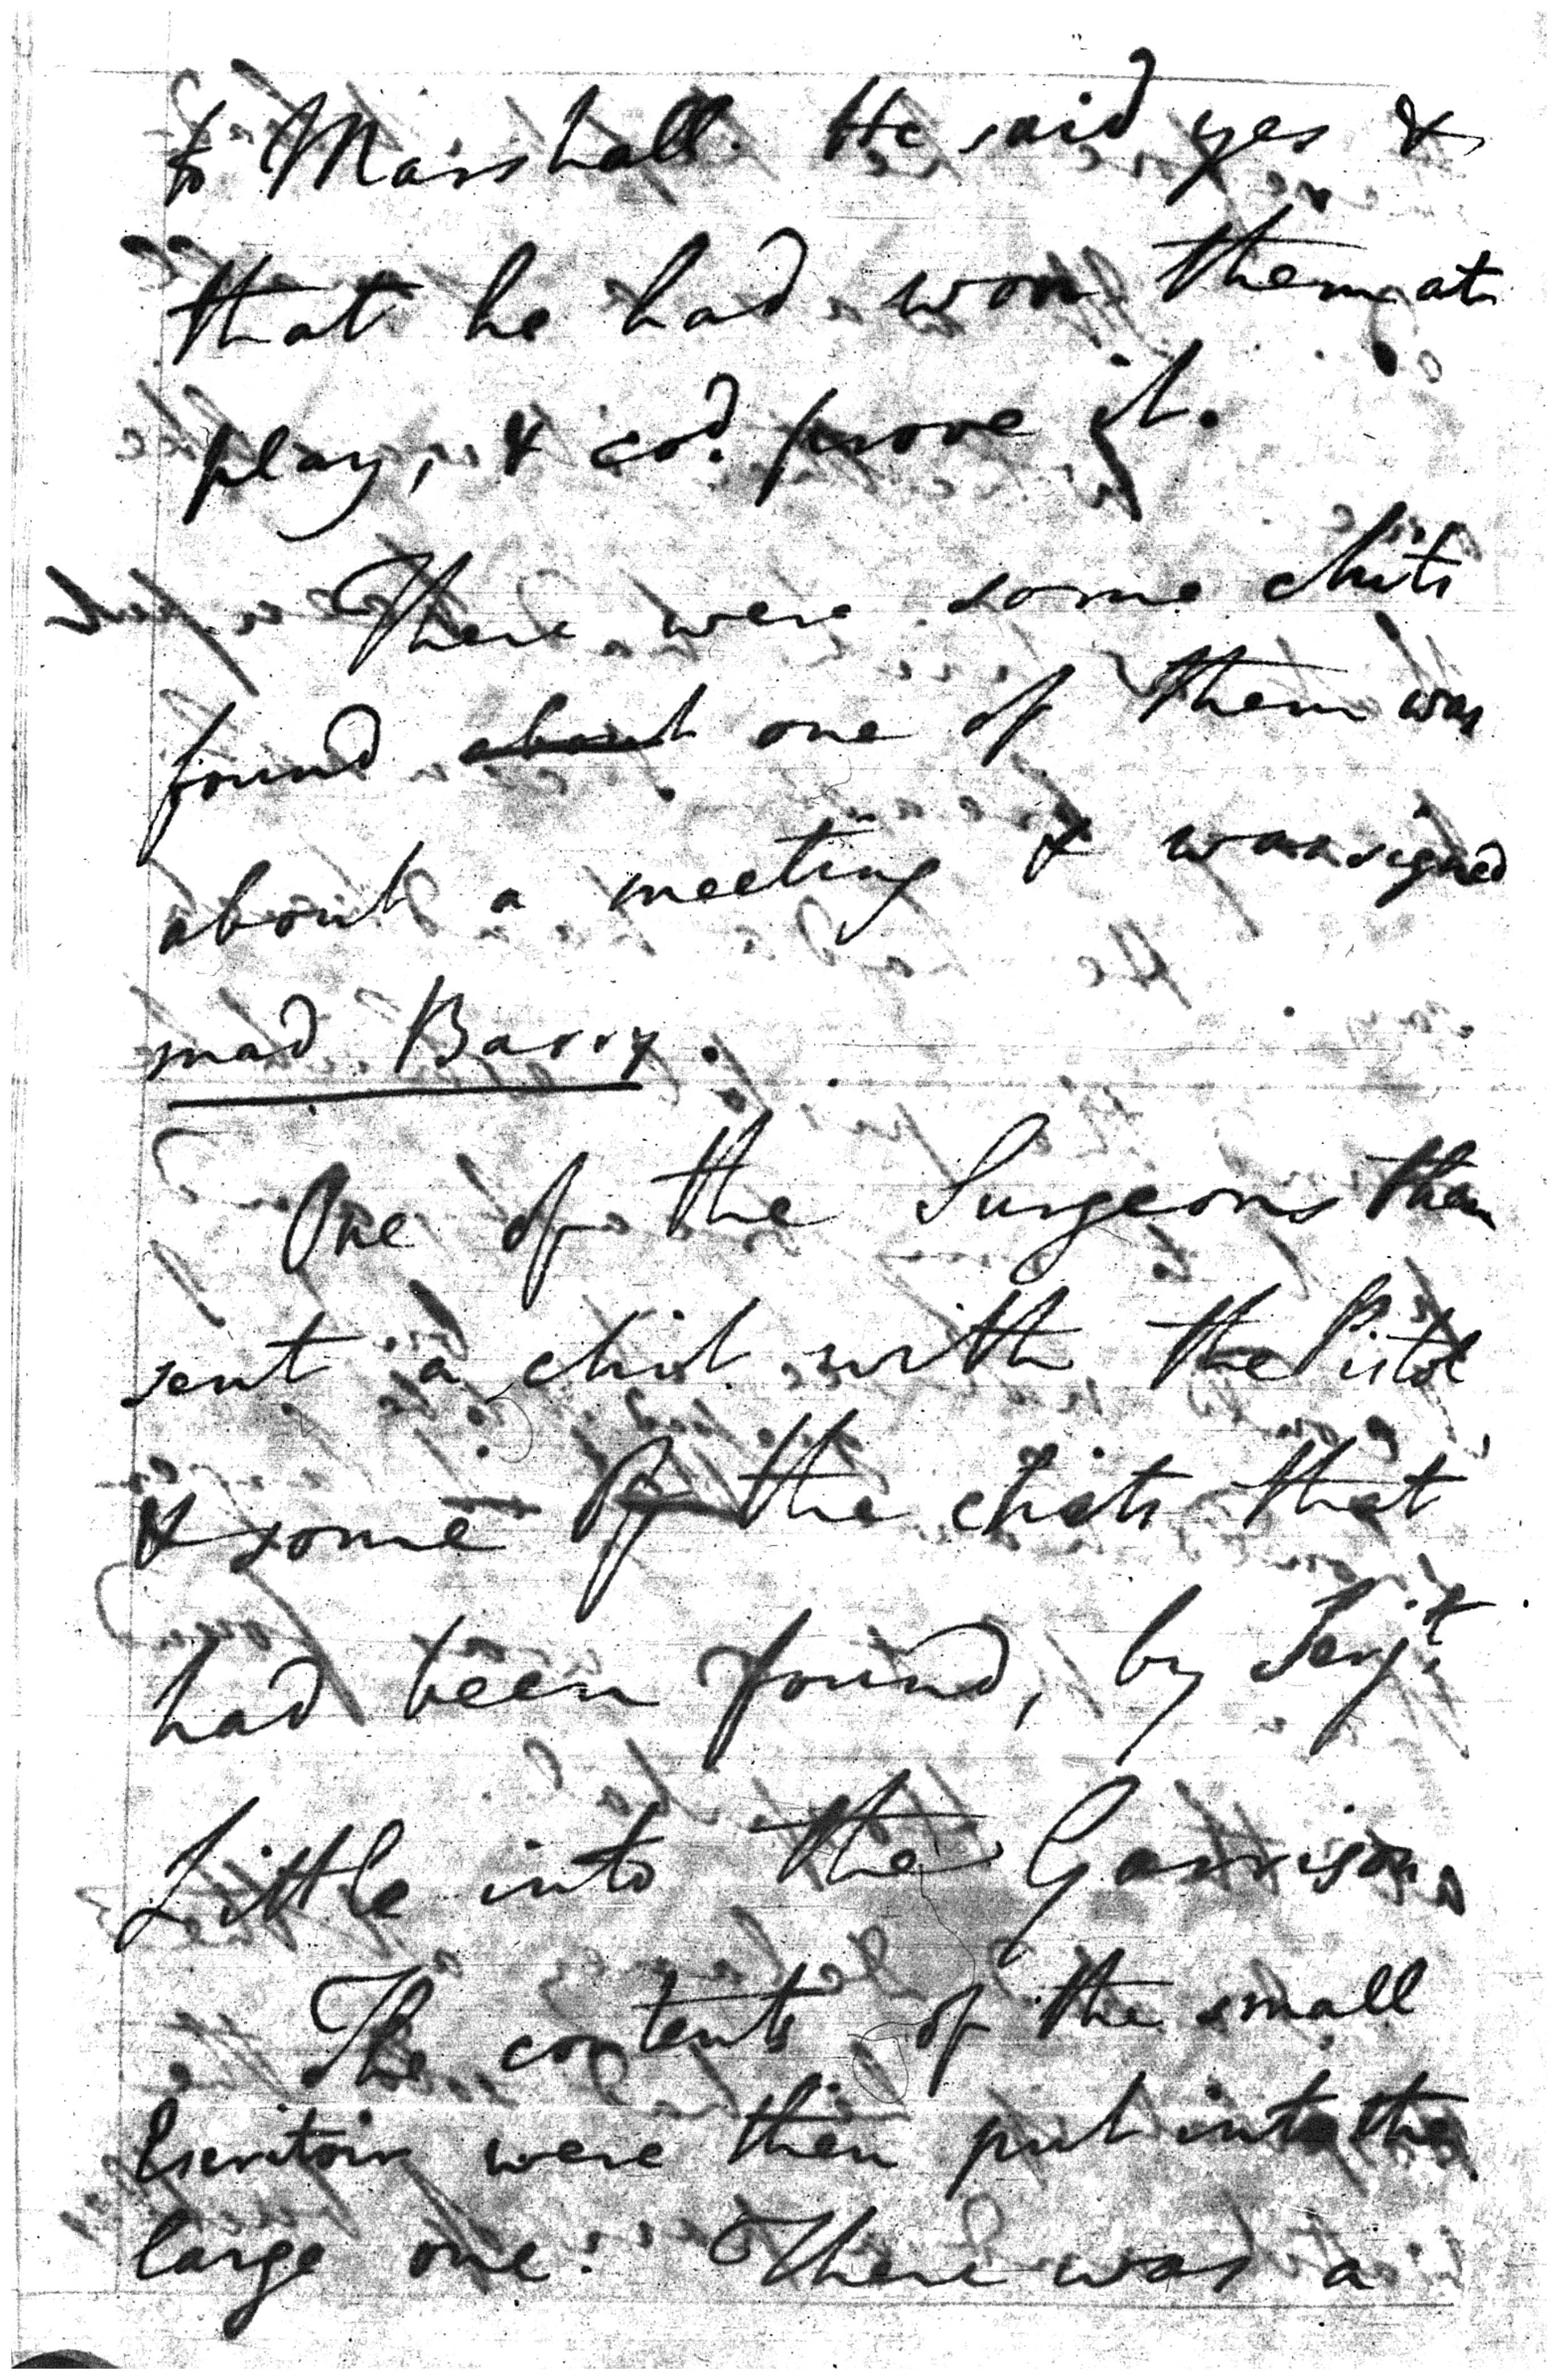 to Marshall. He said yes &
that he had won them at
play, & cod. prove it.
There were some chits
found about one of them was
about a meeting & was signed
mad Barry.
One of the Surgeons then
sent a chit with the Pistol
& some of the chits that
had been found, by Serjt.
Little into the Garrison.
The contents of the small
Escritoire were then put into the
large one. There was a